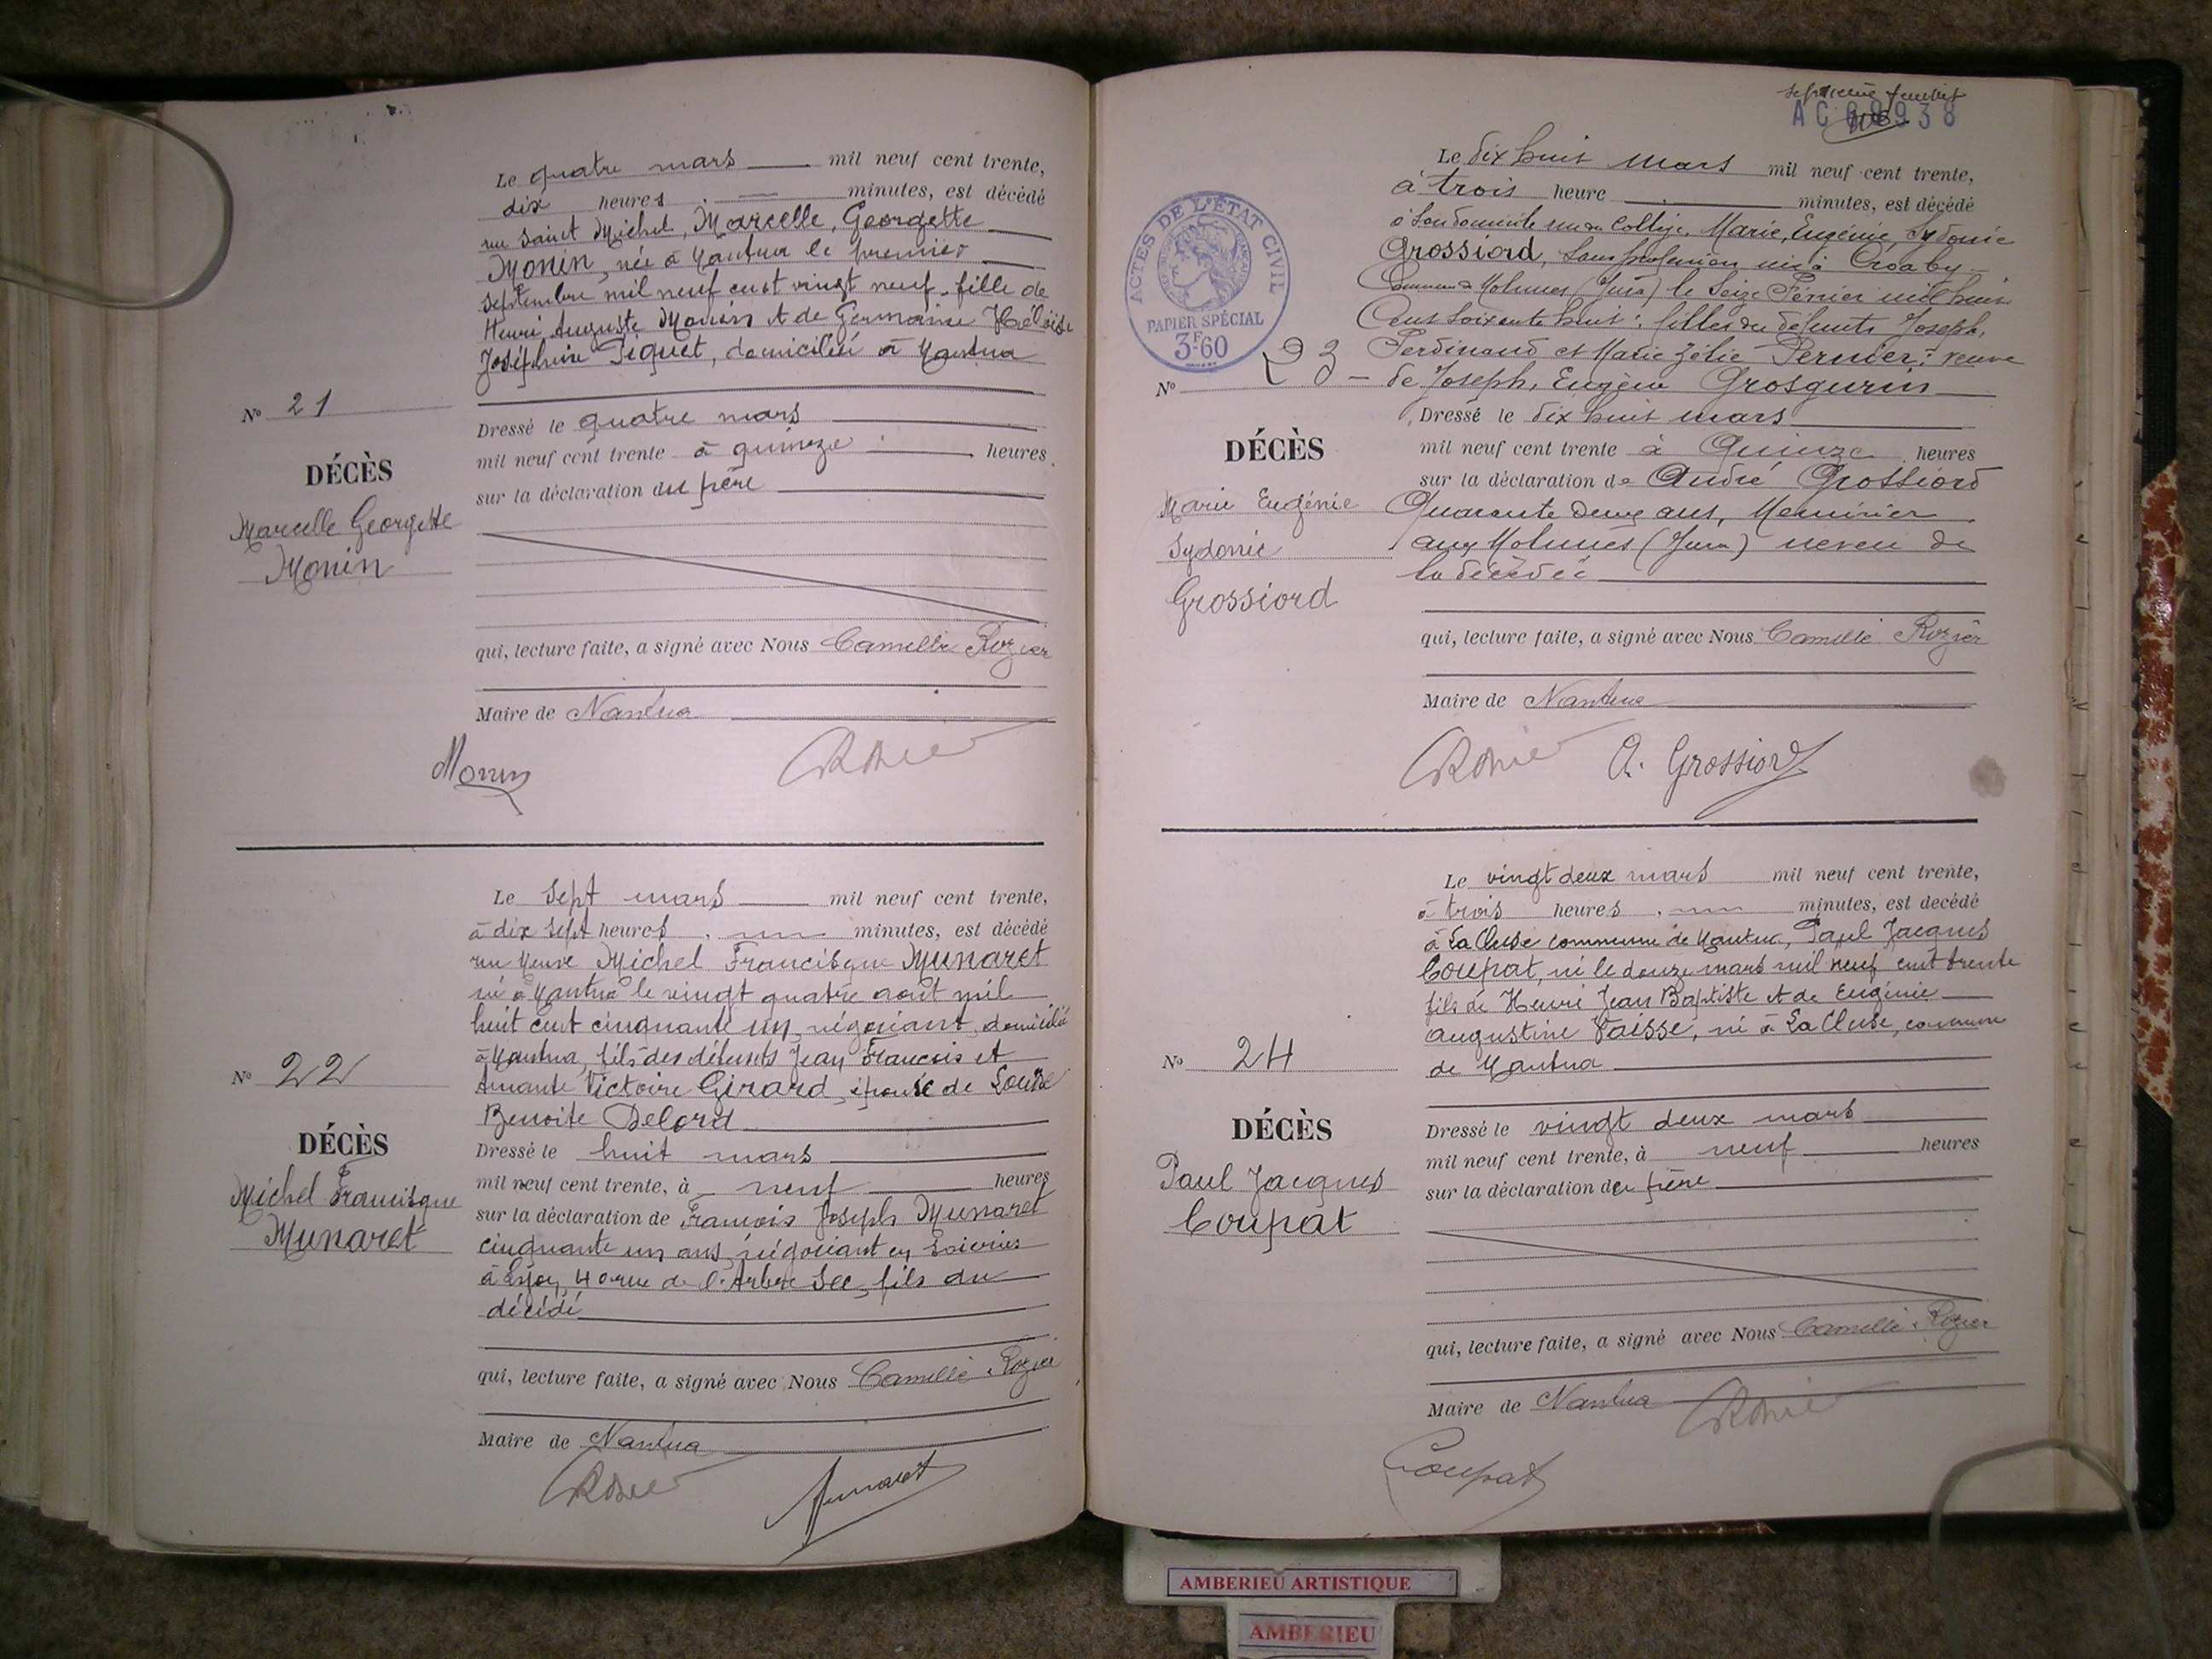 Le quatre mars mil neuf cent trente,
dix heures minutes, est décédé
rue Saint Michel, Marcelle, Georgette
Monin, née à Nantua le premier
septembre mil neuf cent vingt neuf, fille de
Henri Auguste Monin et de Germaine Héloïse
Joséphine Piquet, domiciliée à Nantua
No 21
DÉCÈS
Marcelle Georgette
Monin
Dressé le quatre mars
mil neuf cent trente à quinze heures
sur la déclaration du père
qui, lecture faite, a signé avec Nous Camille Rozier
Maire de Nantua
Monin
Le sept mars mil neuf cent trente,
à dix sept heures minutes, est décédé
rue Neuve Michel Francisque Munaret
né à Nantua le vingt quatre août mil
huit cent cinquante un, négociant, domicilié
à Nantua, fils des défunts Jean François et
Amante Victoire Girard, épouse de Louise
Benoite Delord
No 22
DÉCÈS
Michel Francisque
Munaret
Dressé le huit mars
mil neuf cent trente, à neuf heures
sur la déclaration de François Joseph Munaret
cinquante un ans, négociant en soieries
à Lyon, 40 rue de l'Arbre Sec, fils du
décédé
qui, lecture faite, a signé avec Nous Camille Rozier
Maire de Nantua
Munaret
septième feuillet
AC 938
ACTES DE L'ÉTAT CIVIL
PAPIER SPÉCIAL
3F60
Le dix huit mars mil neuf cent trente,
à trois heure minutes, est décédé
à son domicile rue du Collège, Marie, Eugénie, Sydonie
Grossiord, sans profession, née à
Molunes (Jura) le seize Février mil huit
Cent soixante huit; fille des défunts Joseph,
Ferdinand et Marie Zélie Pernier; veuve
de Joseph, Eugène Grosgurin
No 23
DÉCÈS
Marie Eugénie
Sydonie
Grossiord
Dressé le dix huit mars
mil neuf cent trente à Quinze heures
sur la déclaration de André Grossiord
Quarante deux ans, Menuisier
aux Molunes (Jura) neveu de
la décédée
qui, lecture faite, a signé avec Nous Camille Rozier
Maire de Nantua
A. Grossiord
Le vingt deux mars mil neuf cent trente,
à trois heures minutes, est decédé
à La Cluse commune de Nantua, Paul Jacques
Coupat, né le douze mars mil neuf cent trente
fils de Henri Jean Baptiste et de Eugénie
Augustine Vaisse, né à La Cluse, commune
de Nantua
No 24
DÉCÈS
Paul Jacques
Coupat
Dressé le vingt deux mars
mil neuf cent trente, à neuf heures
sur la déclaration du père
qui, lecture faite, a signé avec Nous Camille Rozier
Maire de Nantua
Coupat
AMBERIEU ARTISTIQUE
AMBERIEU